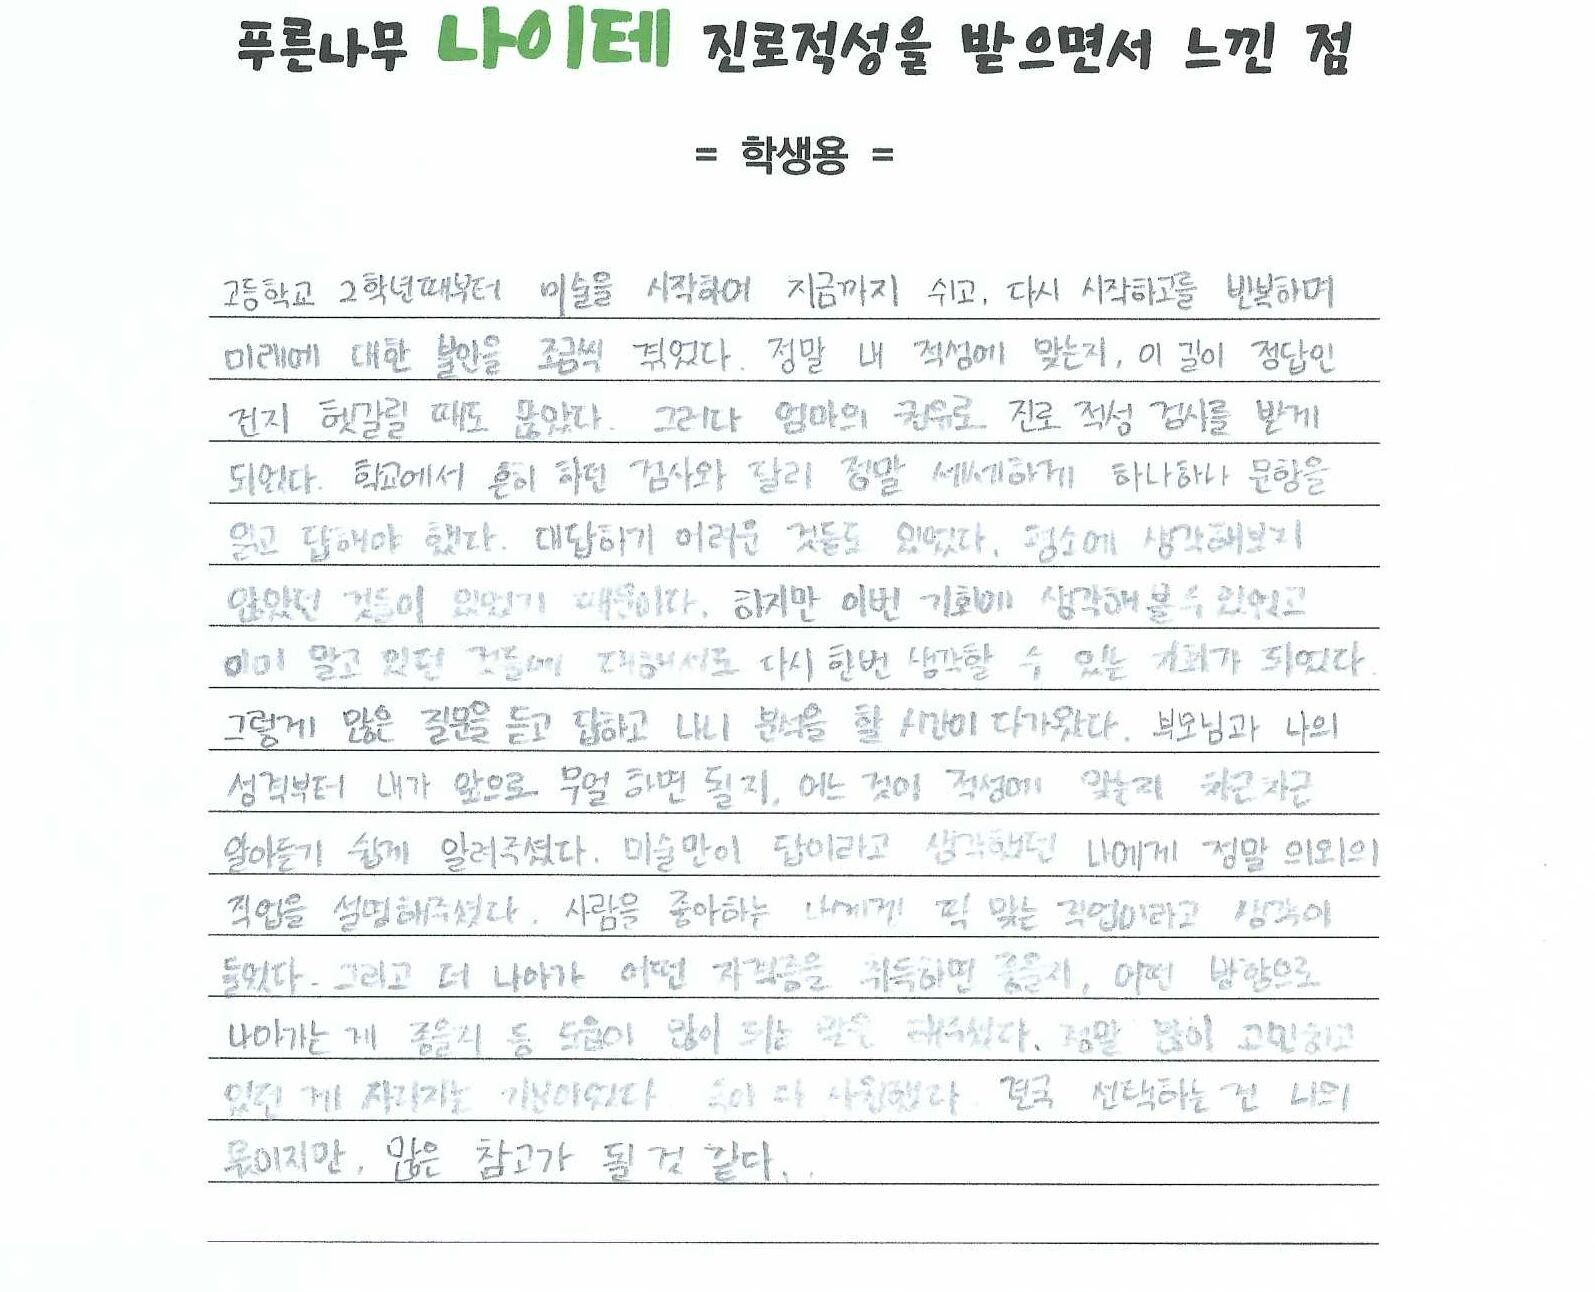 푸른나무 나이테 진로적성을 받으면서 느낀 점
= 학생용 =
고등학교 2학년때부터 미술을 시작하여 지금까지 쉬고, 다시 시작하고를 반복하며
미래에 대한 불안을 조금씩 겪었다. 정말 내 적성에 맞는지, 이 길이 정답인
건지 헷갈릴 때도 많았다. 그러다 엄마의 권유로 진로 적성 검사를 받게
되었다. 학교에서 흔히 하던 검사와 달리 정말 세세하게 하나하나 문항을
읽고 답해야 했다. 대답하기 어려운 것들도 있었다. 평소에 생각해보지
않았던 것들이 있었기 때문이다. 하지만 이번 기회에 생각해 볼 수 있었고
이미 알고 있던 것들에 대해서도 다시 한번 생각할 수 있는 기회가 되었다.
그렇게 많은 질문을 듣고 답하고 나니 분석을 할 시간이 다가왔다. 부모님과 나의
성격부터 내가 앞으로 무얼 하면 될지, 어느 것이 적성에 맞는지 차근차근
알아듣기 쉽게 알려주셨다. 미술만이 답이라고 생각했던 나에게 정말 의외의
직업을 설명해주셨다. 사람을 좋아하는 나에게 딱 맞는 직업이라고 생각이
들었다. 그리고 더 나아가 어떤 자격증을 취득하면 좋을지, 어떤 방향으로
나아가는 게 좋을지 등 도움이 많이 되는 말을 해주셨다. 정말 많이 고민하고
있던 게 사라지는 기분이었다 속이 다 시원했다. 결국 선택하는 건 나의
몫이지만, 많은 참고가 될 것 같다..